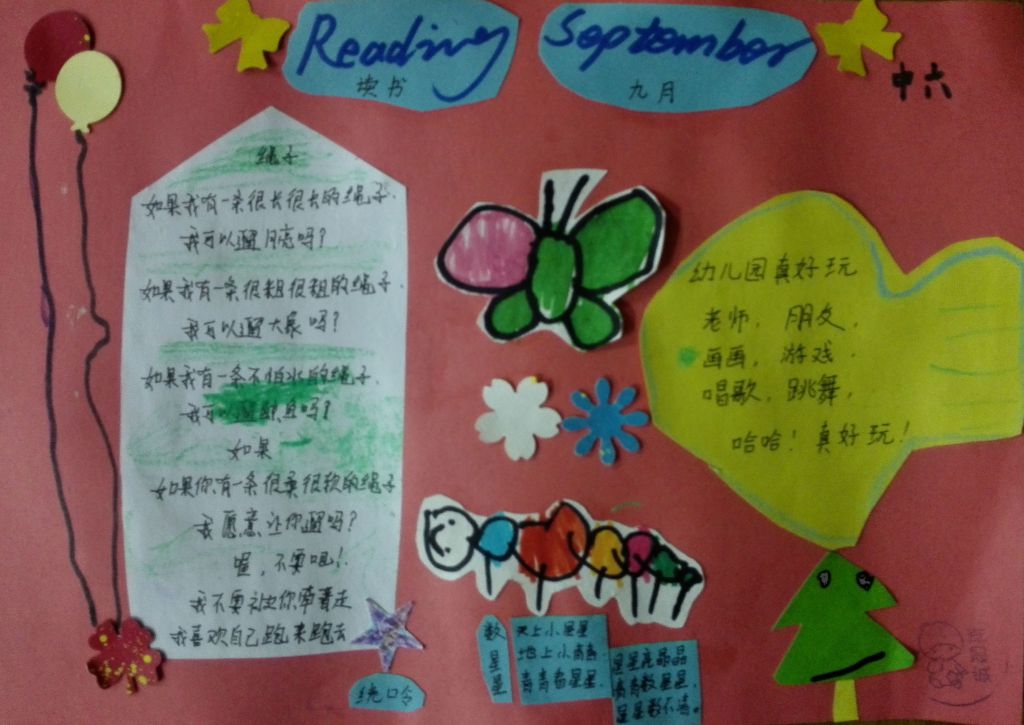 Reading
读书
September
九月
中六
绳子
如果我有一条很长很长的绳子,
我可以遛月亮吗?
如果我有一条很粗很粗的绳子,
我可以遛大象吗?
如果我有一条不怕水的绳子,
我可以遛吗?
如果
如果你有一条很柔很软的绳子
我愿意让你遛吗?
喔,不要!
我不要被你牵着走
我喜欢自己跑来跑去
幼儿园真好玩
老师,朋友,
画画,游戏.
唱歌,跳舞,
哈哈!真好玩!
绕口令
数星星
天上小星星
地上小青青
青青看星星.
星星亮晶晶
青青数星星,
星星数不清。